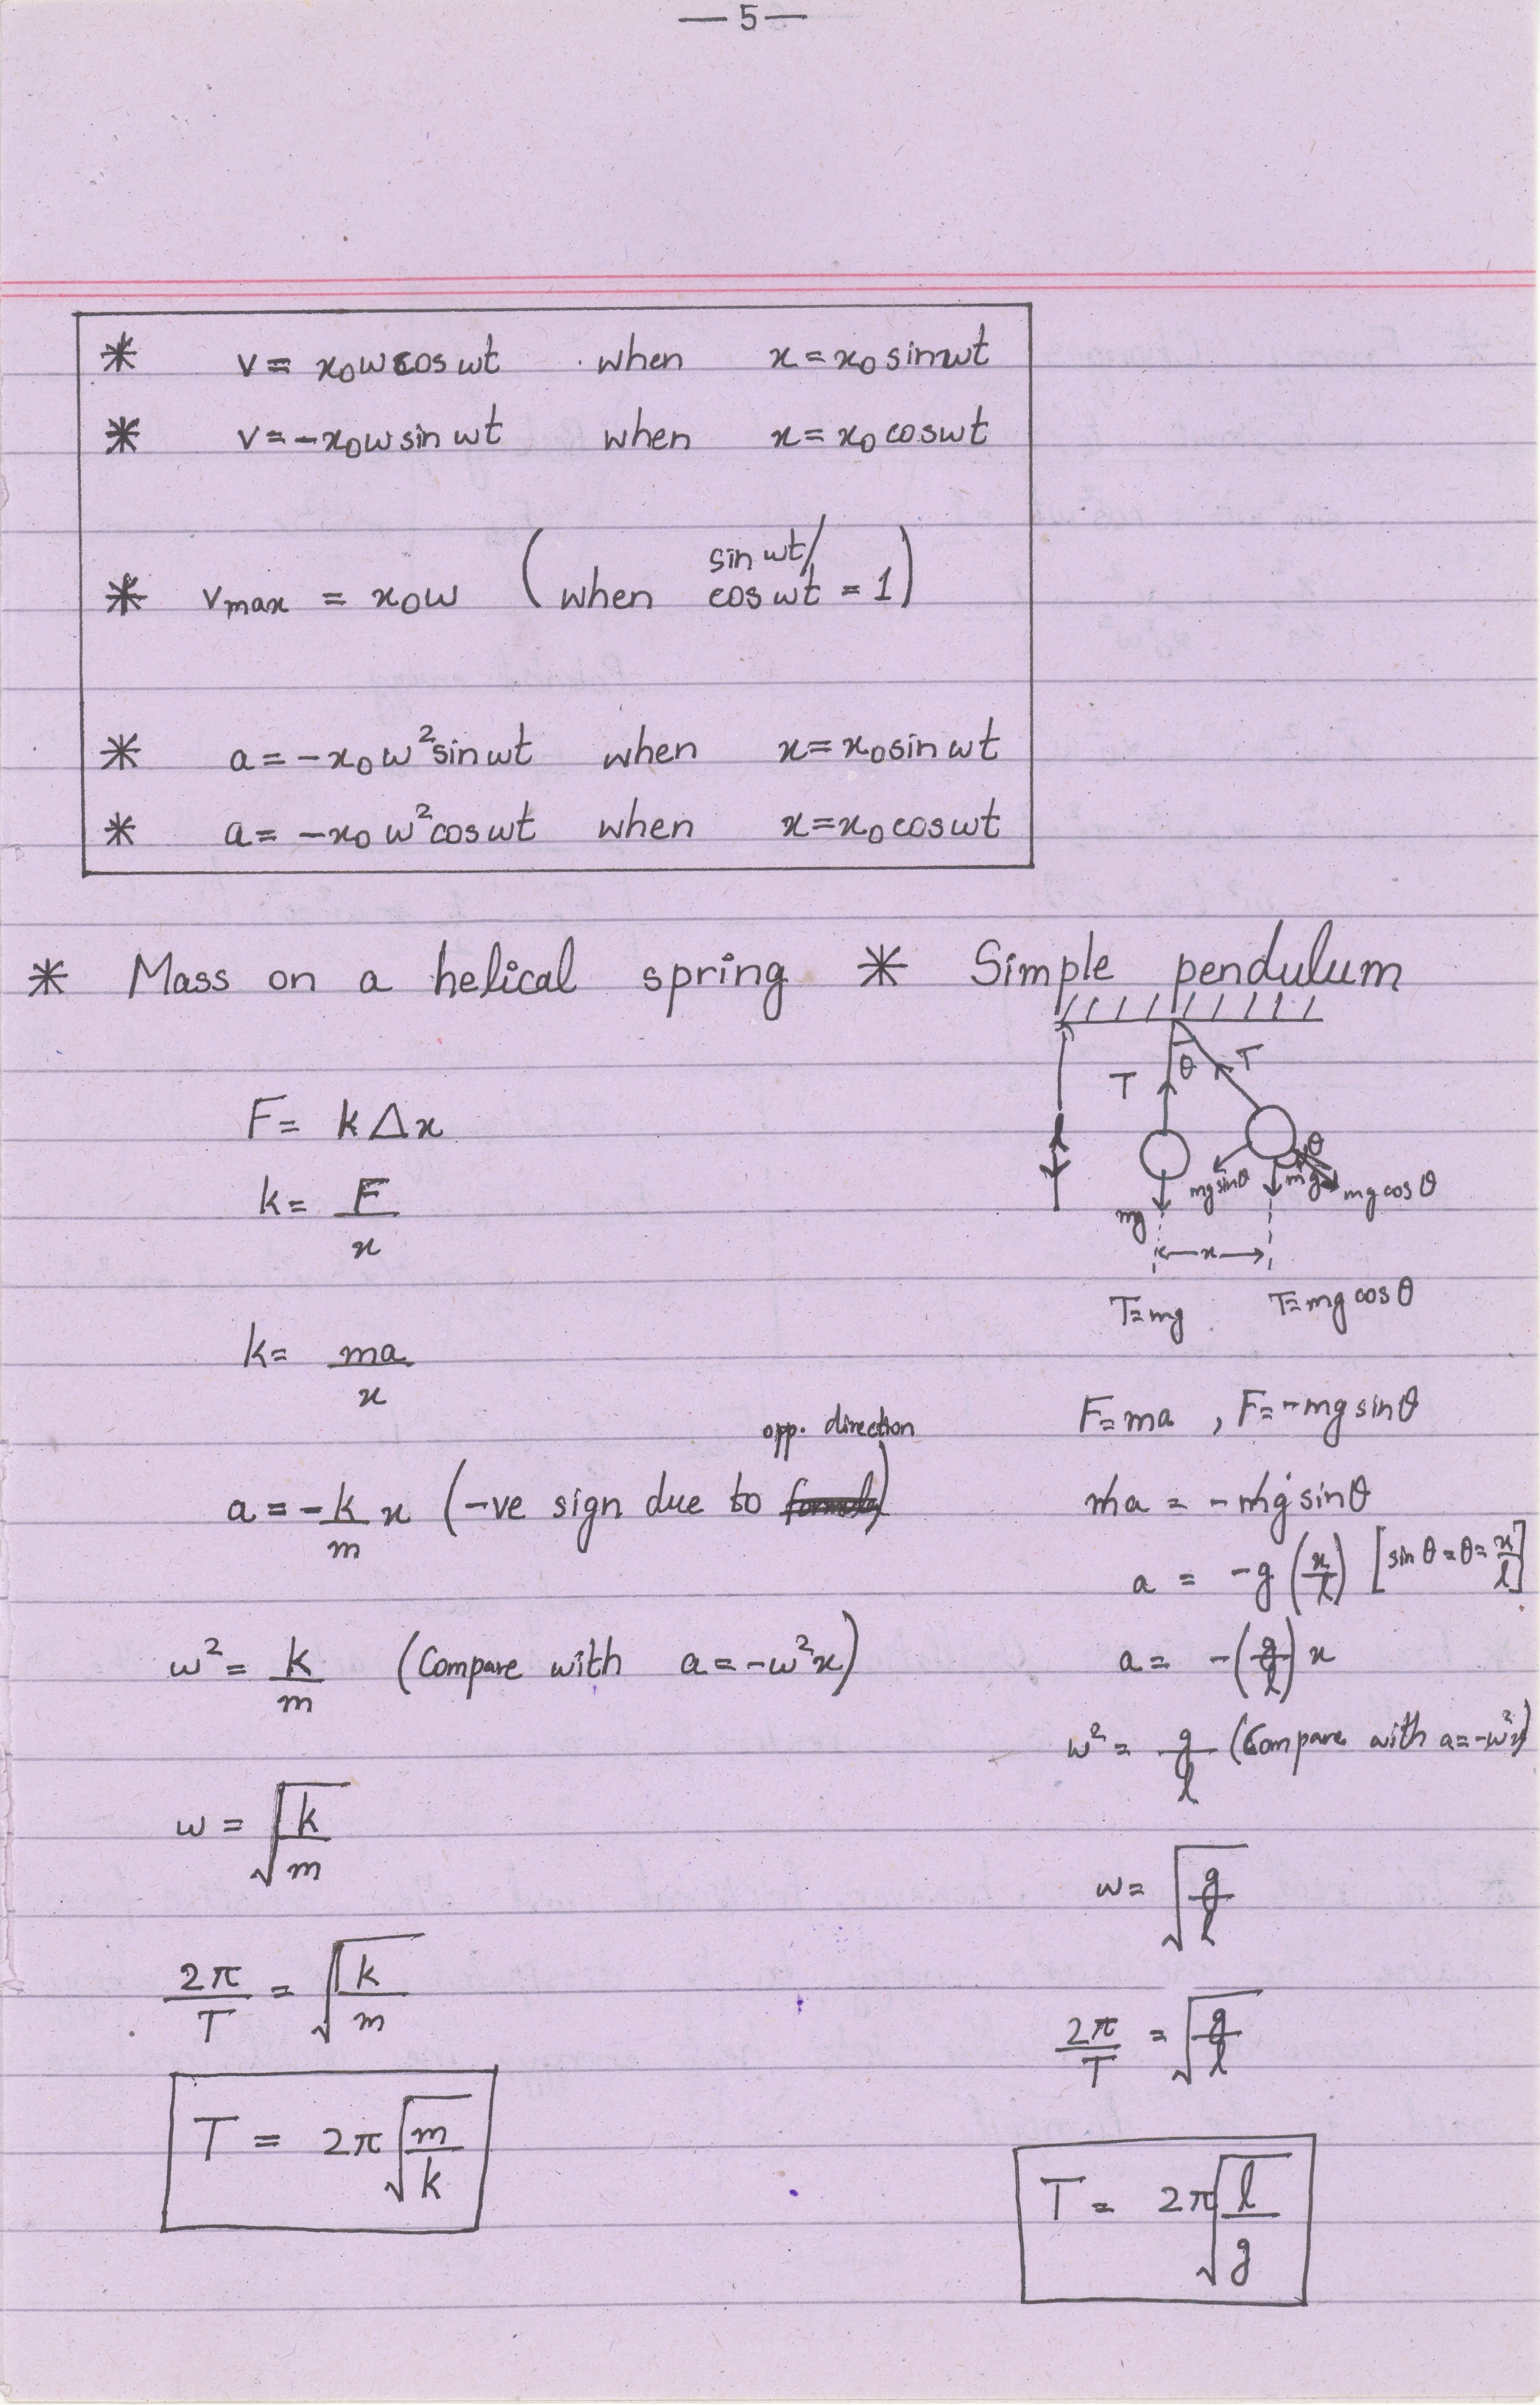 —5—
* v = x₀ω cos ωt when x = x₀ sin ωt
* v = -x₀ω sin ωt when x = x₀ cos ωt
* vmax = x₀ω (when sin ωt/
cos ωt = 1)
* a = -x₀ω² sin ωt when x = x₀ sin ωt
* a = -x₀ω² cos ωt when x = x₀ cos ωt
* Mass on a helical spring
F = kΔx
k = F/x
k = ma/x
opp. direction
a = -k/m x (-ve sign due to )
ω² = k/m (Compare with a = -ω²x)
ω = √(k/m)
2π/T = √(k/m)
T = 2π√(m/k)
* Simple pendulum
T θ T
l
θ
mg sinθ mg mg cosθ
mg
x
T=mg T=mg cosθ
F=ma , F=-mg sinθ
ma = -mg sinθ
a = -g (x/l) [sin θ = θ = x/l]
a = -(g/l) x
ω² = g/l (Compare with a=-ω²x)
ω = √(g/l)
2π/T = √(g/l)
T = 2π√(l/g)